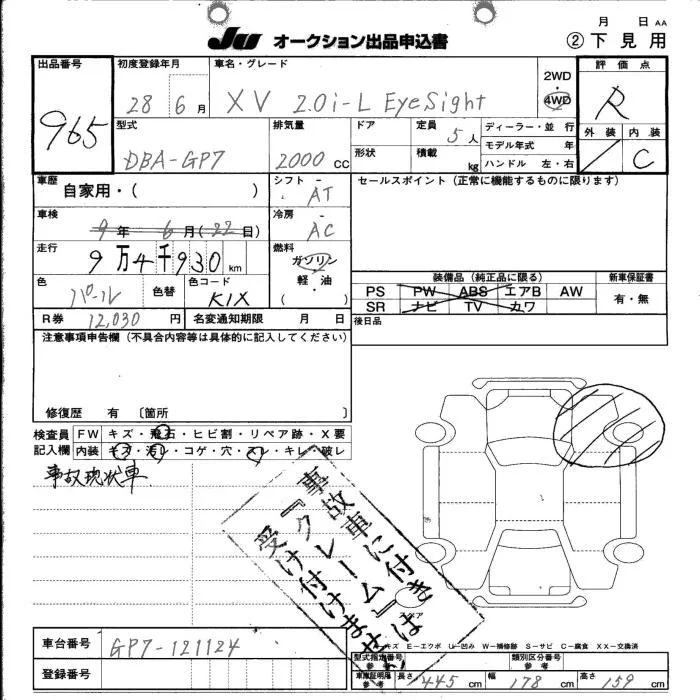 月 日 AA
JU オークション出品申込書 ② 下見用
出品番号 初度登録年月 車名・グレード 2WD・4WD 評価点
965 28 6月 XV 2.0i-L EyeSight R
型式 排気量 ドア 定員 5人 ディーラー・並 行 外装 内装
DBA-GP7 2000 CC 形状 積載 kg モデル年式 年 / C
ハンドル 左・右
車歴 自家用・( ) シフト AT セールスポイント(正常に機能するものに限ります)
車検 9年 6月(22日) 冷房 AC
走行 9万4千930 km 燃料 ガソリン
軽・油
( )
色 パール 色替 色コード K1X
装備品(純正品に限る) 新車保証書
PS PW ABS エアB AW 有・無
SR ナビ TV カワ
R券 12,030 円 名変通知期限 月 日 後日品
注意事項申告欄(不具合内容等は具体的に記入してください)
修復歴 有 〔箇所 〕
検査員 FW キズ・飛石・ヒビ割・リペア跡・X要
記入欄 内装 キズ・汚レ・コゲ・穴・スレ・キレ・破レ
事故現状車
事故車に付き
『クレーム』は
受け付けません
スペア
キズ E−エクボ U−凹み W−補修跡 S−サビ C−腐食 XX−交換済
車台番号 GP7-121124
型式指定番号 参考 類別区分番号 参考
登録番号
車庫証明用 参考 長さ 445 cm 幅 178 cm 高さ 159 cm